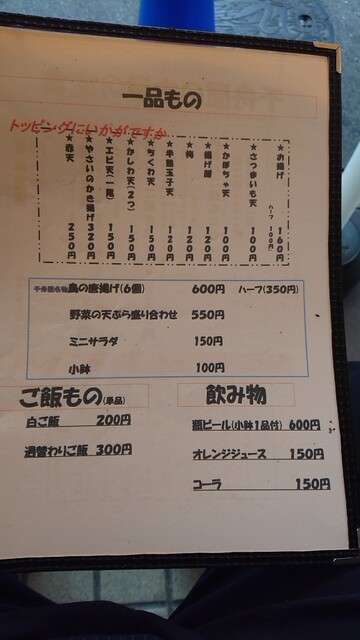 一品もの
トッピングにいかがですか
★お揚げ 160円
ハーフ 100円
★さつまいも天 100円
★かぼちゃ天 100円
★揚げ餅 120円
★梅 120円
★半熟玉子天 120円
★ちくわ天 150円
★かしわ天(2つ) 150円
★エビ天(一尾) 150円
★やさいのかき揚げ 320円
★赤天 250円
鳥の唐揚げ(6個) 600円 ハーフ(350円)
野菜の天ぷら盛り合わせ 550円
ミニサラダ 150円
小鉢 100円
ご飯もの(単品)
白ご飯 200円
週替わりご飯 300円
飲み物
瓶ビール(小鉢1品付) 600円
オレンジジュース 150円
コーラ 150円